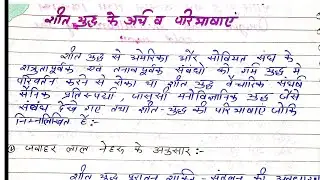 शीत युद्ध के अर्थ व परिभाषाएं
शीत युद्ध से अमेरिका और सोवियत संघ के
शत्रुतापूर्वक एवं तनावपूर्वक संबंधों को गर्म युद्ध में
परिवर्तन करने से रोका था शीत युद्ध वैचारिक संघर्ष
सैनिक प्रतिस्पर्धा, जासूसी मनोविज्ञानिक युद्ध जैसे
संबंध देखे गए तथा शीत-युद्ध की परिभाषाएं जोकि
निम्नलिखित हैं :-
जवाहर लाल नेहरू के अनुसार :-
शीत युद्ध पुरातन शक्ति - संतुलन की अवधारणा